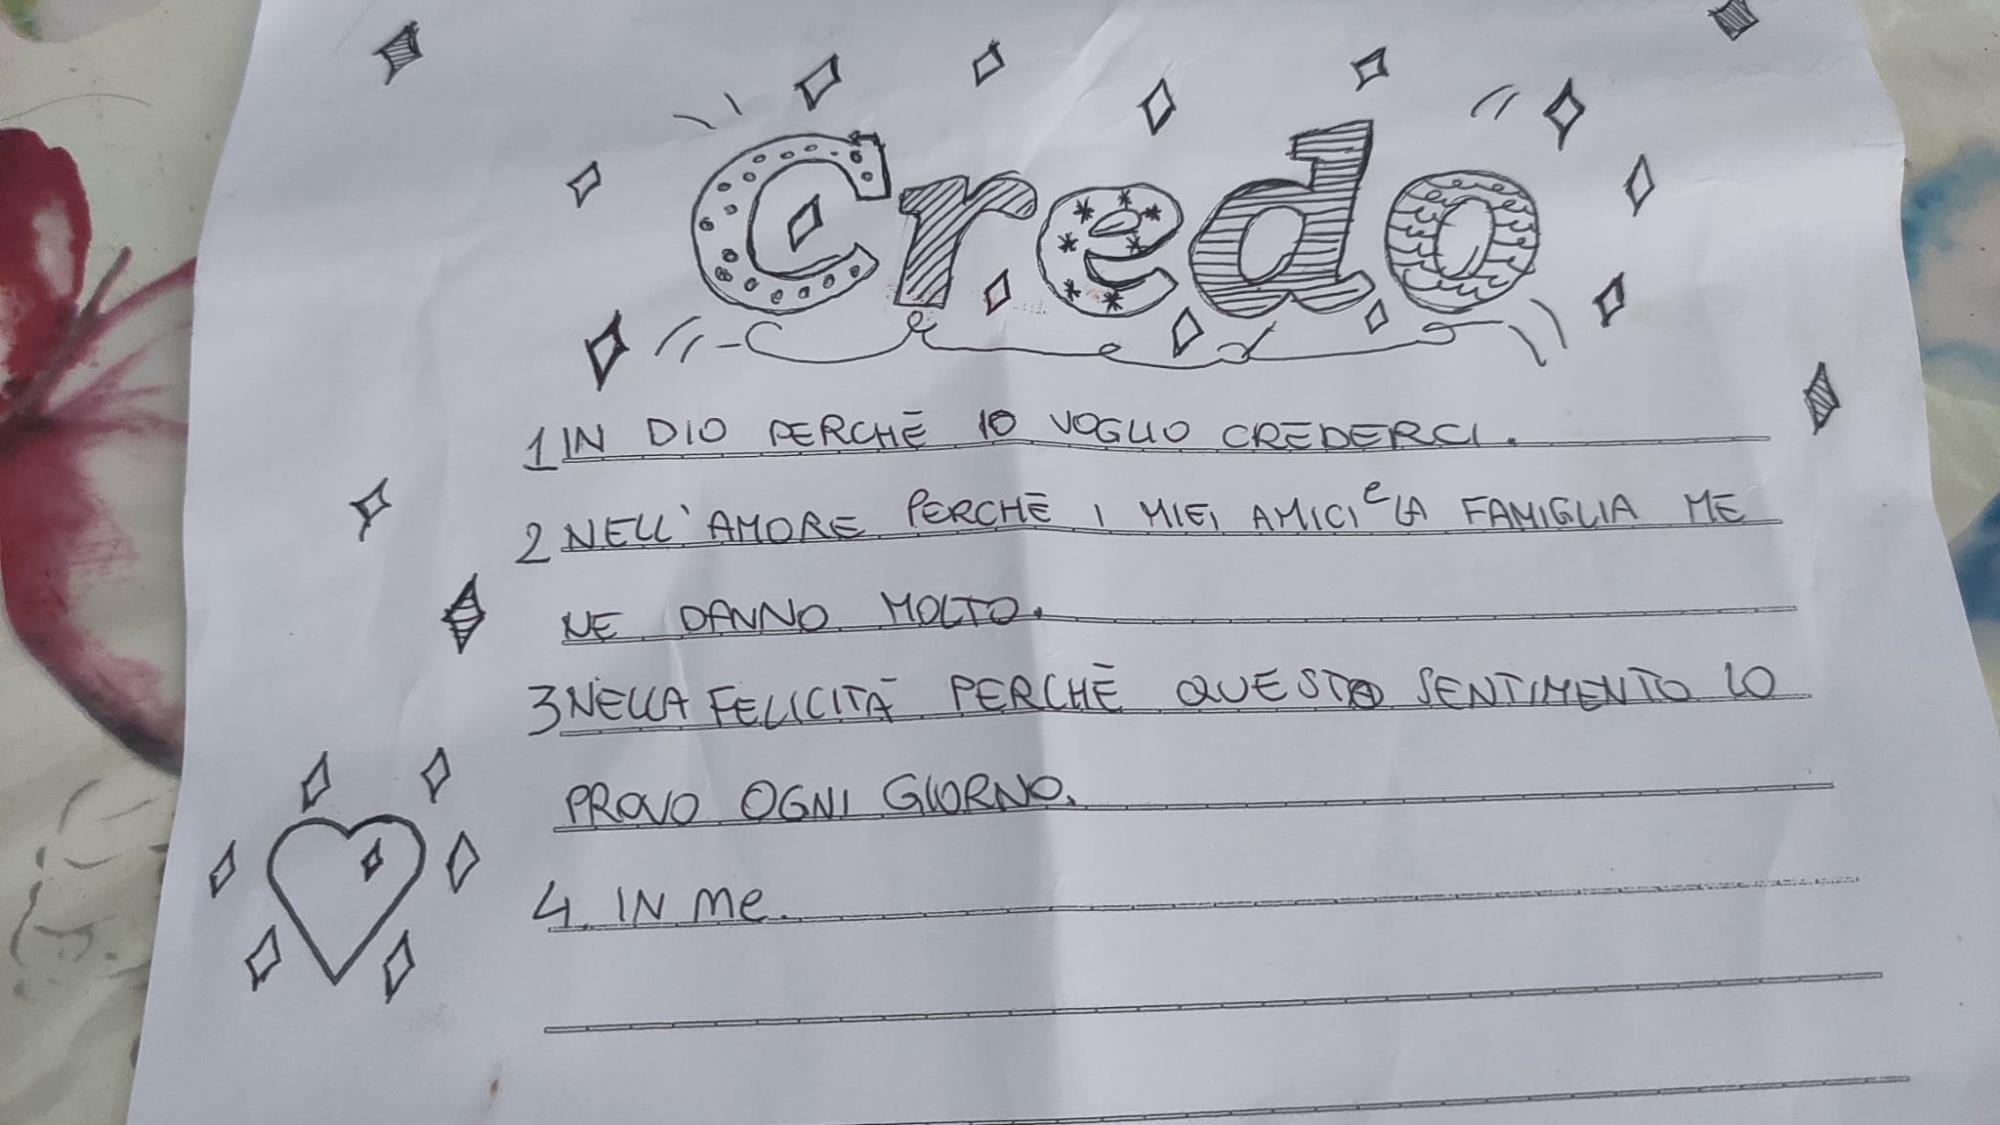 Credo
1 IN DIO PERCHĒ IO VOGLIO CREDERCI.
2 NELL'AMORE PERCHĒ I MIEI AMICI e LA FAMIGLIA ME
NE DANNO MOLTO.
3 NELLA FELICITĀ PERCHĒ QUESTO SENTIMENTO LO
PROVO OGNI GIORNO.
4. IN me.